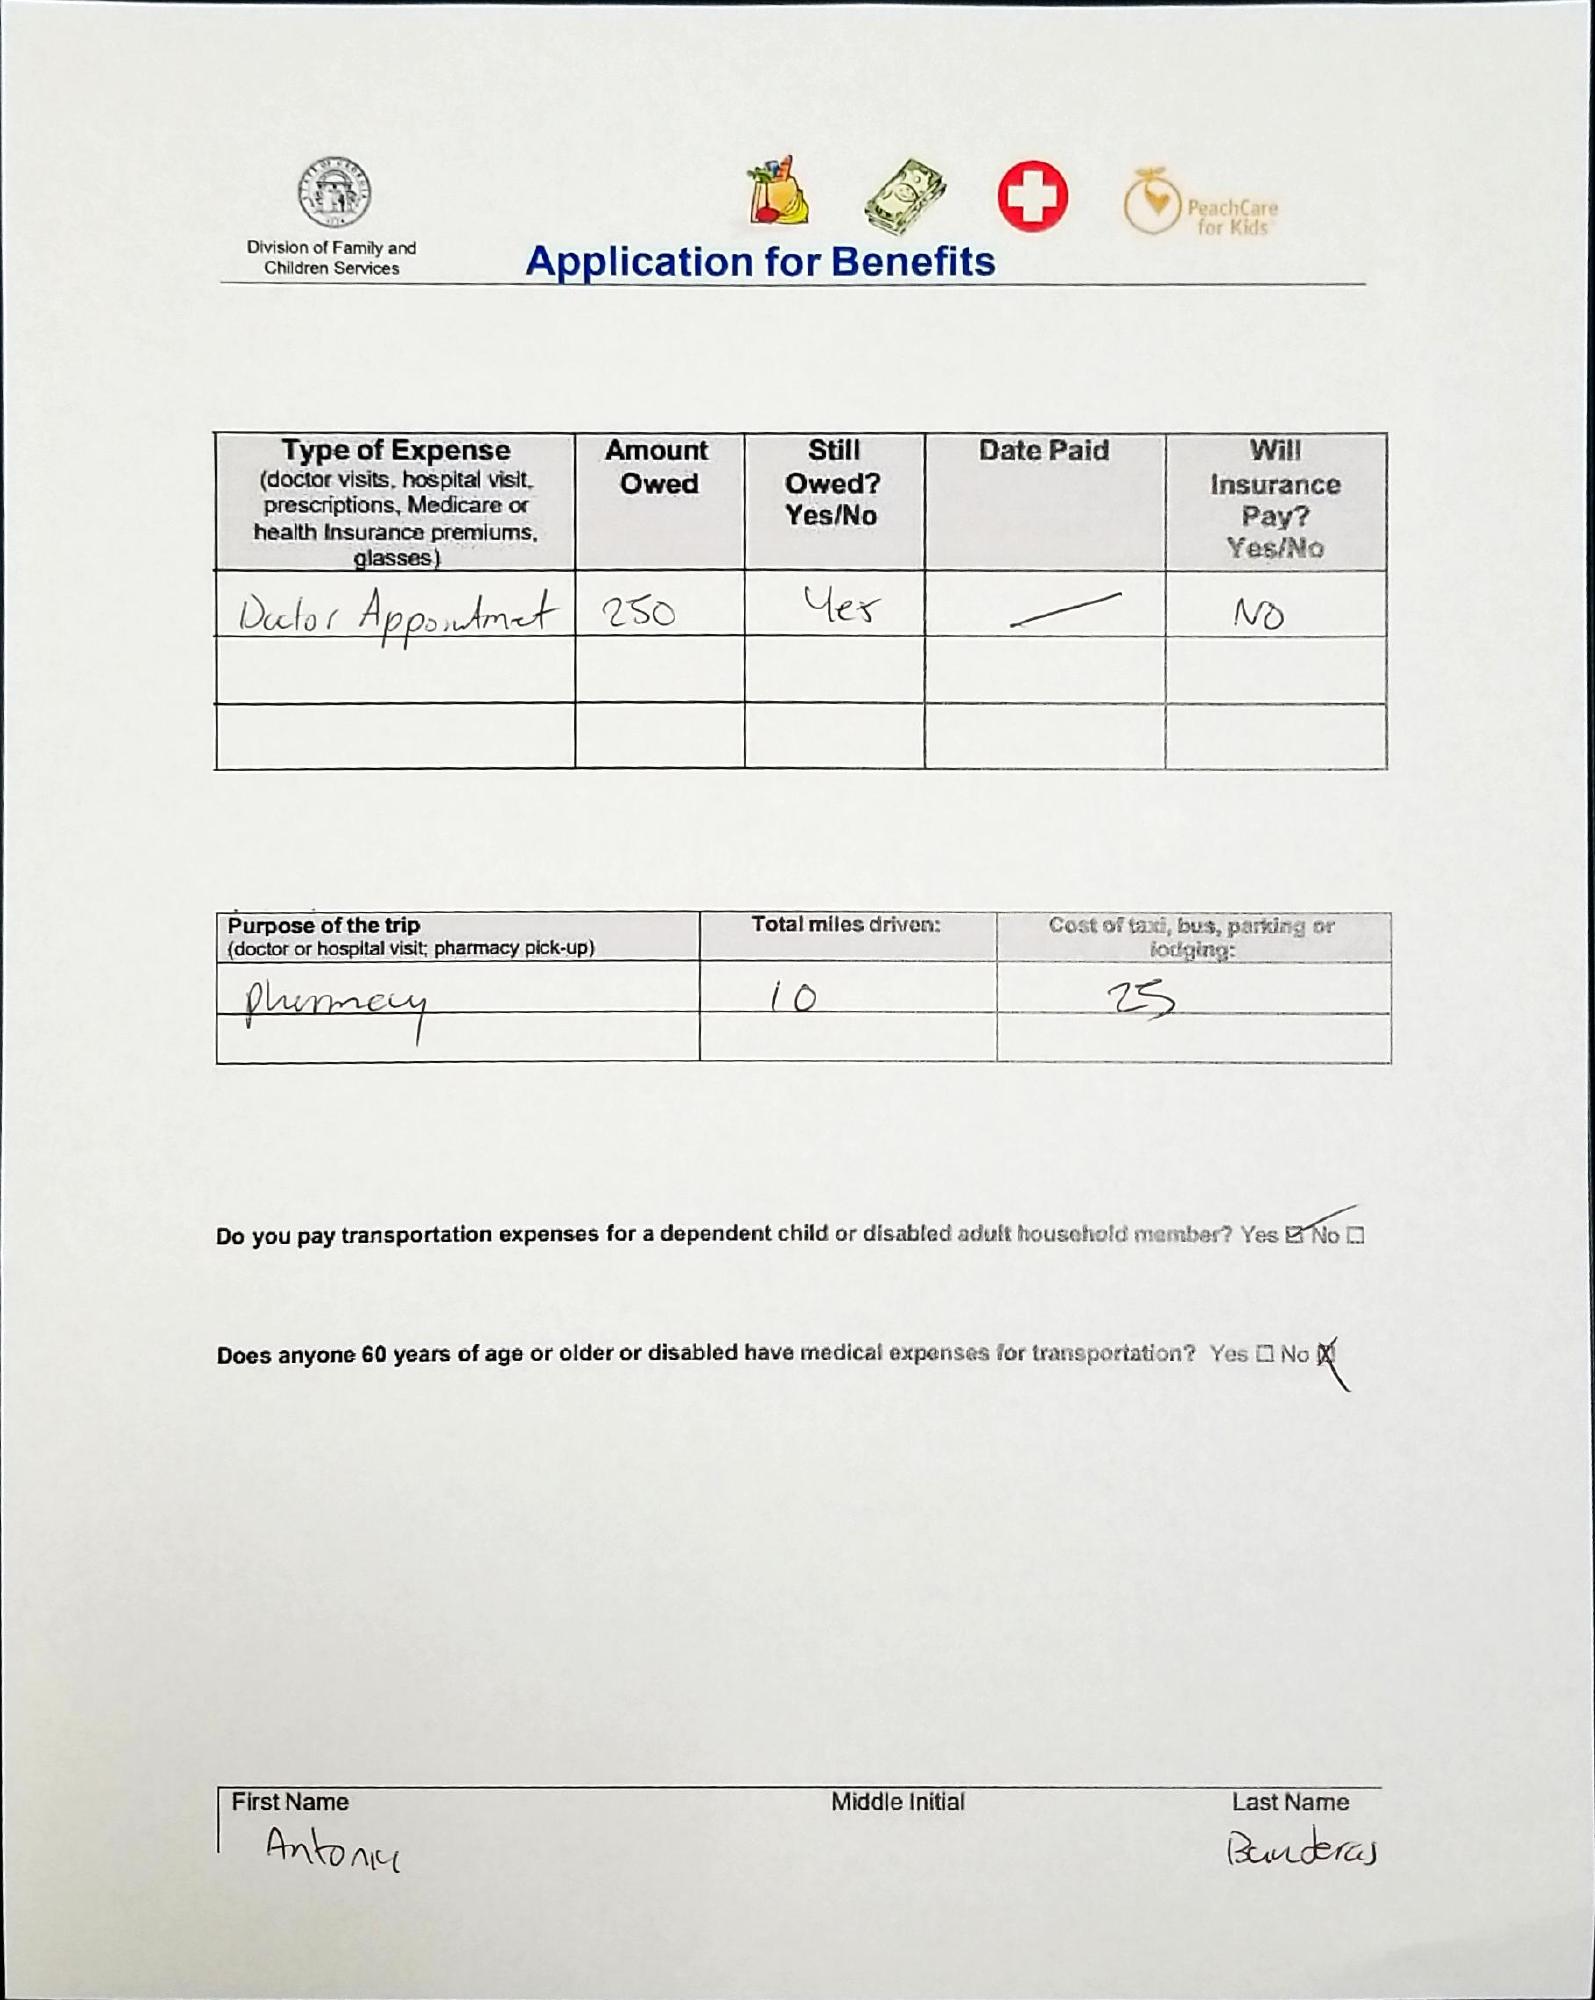 PeachCare
for Kids
Division of Family and
Children Services
Application for Benefits
Type of Expense
(doctor visits, hospital visit,
prescriptions, Medicare or
health Insurance premiums,
glasses)
Amount
Owed
Still
Owed?
Yes/No
Date Paid
Will
Insurance
Pay?
Yes/No
Doctor Appointmet 250 Yes — No
Purpose of the trip
(doctor or hospital visit; pharmacy pick-up)
Total miles driven:
Cost of taxi, bus, parking or
lodging:
pharmacy 10 25
Do you pay transportation expenses for a dependent child or disabled adult household member? Yes ☑ No ☐
Does anyone 60 years of age or older or disabled have medical expenses for transportation? Yes ☐ No ☒
First Name Middle Initial Last Name
Banderas